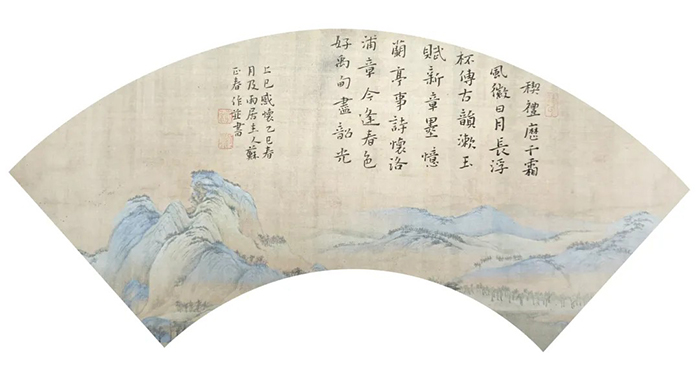 禊禮曆千霜
風徽日月長浮
杯傳古韻漱玉
賦新章墨憶
蘭亭事詩懷洛
浦章今逢春色
好禹甸盡韶光
上巳感懷乙巳春
月及雨居主人蘇
正春作並書